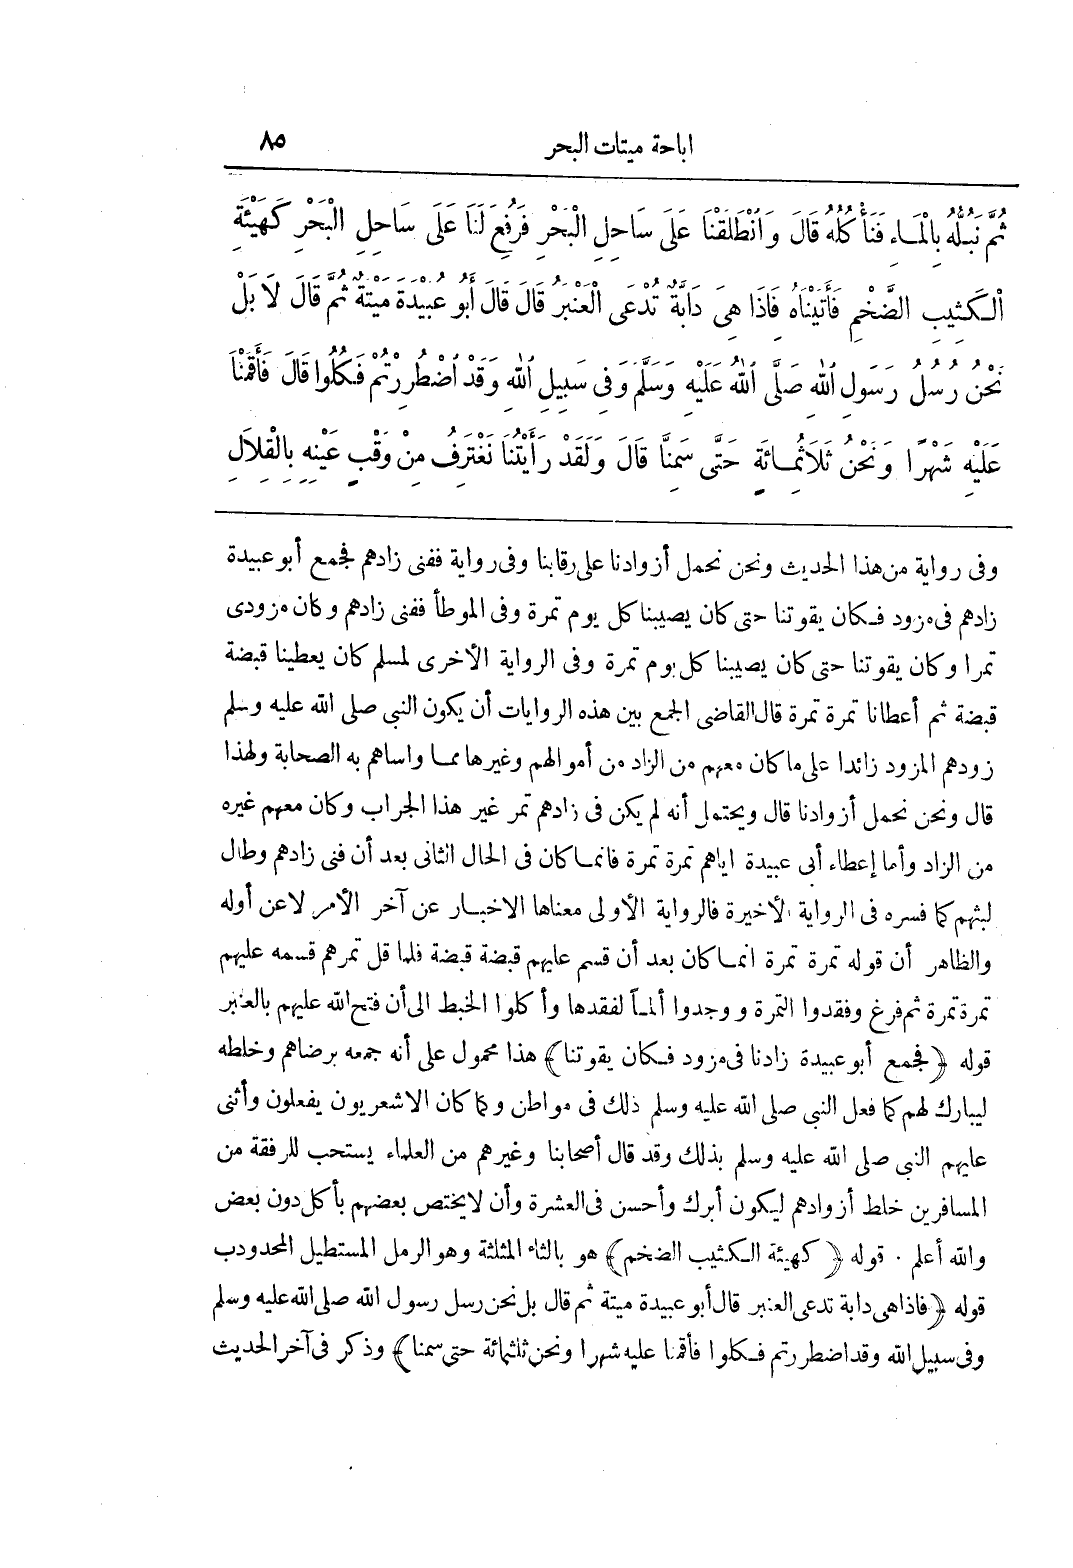 اباحة ميتات البحر ٨٥
ثُمَّ نَبُلُّهُ بِالْمَاءِ فَنَأْكُلُهُ قَالَ وَانْطَلَقْنَا عَلَى سَاحِلِ الْبَحْرِ فَرُفِعَ لَنَا عَلَى سَاحِلِ الْبَحْرِ كَهَيْئَةِ
الْكَثِيبِ الضَّخْمِ فَأَتَيْنَاهُ فَاذَا هِيَ دَابَّةٌ تُدْعَى الْعَنْبَرُ قَالَ قَالَ أَبُو عُبَيْدَةَ مَيْتَةٌ ثُمَّ قَالَ لَا بَلْ
نَحْنُ رُسُلُ رَسُولِ اللهِ صَلَّى اللهُ عَلَيْهِ وَسَلَّمَ وَفِى سَبِيلِ اللهِ وَقَدْ اضْطُرِرْتُمْ فَكُلُوا قَالَ فَأَقَمْنَا
عَلَيْهِ شَهْرًا وَنَحْنُ ثَلَاثُمِائَةٍ حَتَّى سَمِنَّا قَالَ وَلَقَدْ رَأَيْتُنَا نَغْتَرِفُ مِنْ وَقْبِ عَيْنِهِ بِالْقِلَالِ
وفى رواية من هذا الحديث ونحن نحمل أزوادنا على رقابنا وفى رواية ففنى زادهم فجمع أبو عبيدة
زادهم فى مزود فكان يقوتنا حتى كان يصيبنا كل يوم تمرة وفى الموطأ ففنى زادهم وكان مزودى
تمرا وكان يقوتنا حتى كان يصيبنا كل يوم تمرة وفى الرواية الأخرى لمسلم كان يعطينا قبضة
قبضة ثم أعطانا تمرة تمرة قال القاضى الجمع بين هذه الروايات أن يكون النبى صلى الله عليه وسلم
زودهم المزود زائدا على ما كان معهم من الزاد من أموالهم وغيرها مما واساهم به الصحابة ولهذا
قال ونحن نحمل أزوادنا قال ويحتمل أنه لم يكن فى زادهم تمر غير هذا الجراب وكان معهم غيره
من الزاد وأما إعطاء أبى عبيدة اياهم تمرة تمرة فانما كان فى الحال الثانى بعد أن فنى زادهم وطال
لبثهم كما فسره فى الرواية الأخيرة فالرواية الأولى معناها الاخبار عن آخر الأمر لا عن أوله
والظاهر أن قوله تمرة تمرة انما كان بعد أن قسم عليهم قبضة قبضة فلما قل تمرهم قسمه عليهم
تمرة تمرة ثم فرغ وفقدوا التمرة ووجدوا ألماً لفقدها وأكلوا الخبط الى أن فتح الله عليهم بالعنبر
قوله ﴿فجمع أبو عبيدة زادنا فى مزود فكان يقوتنا﴾ هذا محمول على أنه جمعه برضاهم وخلطه
ليبارك لهم كما فعل النبى صلى الله عليه وسلم ذلك فى مواطن وكما كان الاشعريون يفعلون وأثنى
عليهم النبى صلى الله عليه وسلم بذلك وقد قال أصحابنا وغيرهم من العلماء يستحب للرفقة من
المسافرين خلط أزوادهم ليكون أبرك وأحسن فى العشرة وأن لا يختص بعضهم بأكل دون بعض
والله أعلم . قوله ﴿كهيئة الكثيب الضخم﴾ هو بالثاء المثلثة وهو الرمل المستطيل المحدودب
قوله ﴿فاذا هى دابة تدعى العنبر قال أبو عبيدة ميتة ثم قال بل نحن رسل رسول الله صلى الله عليه وسلم
وفى سبيل الله وقد اضطررتم فكلوا فأقمنا عليه شهرا ونحن ثلثمائة حتى سمنا﴾ وذكر فى آخر الحديث